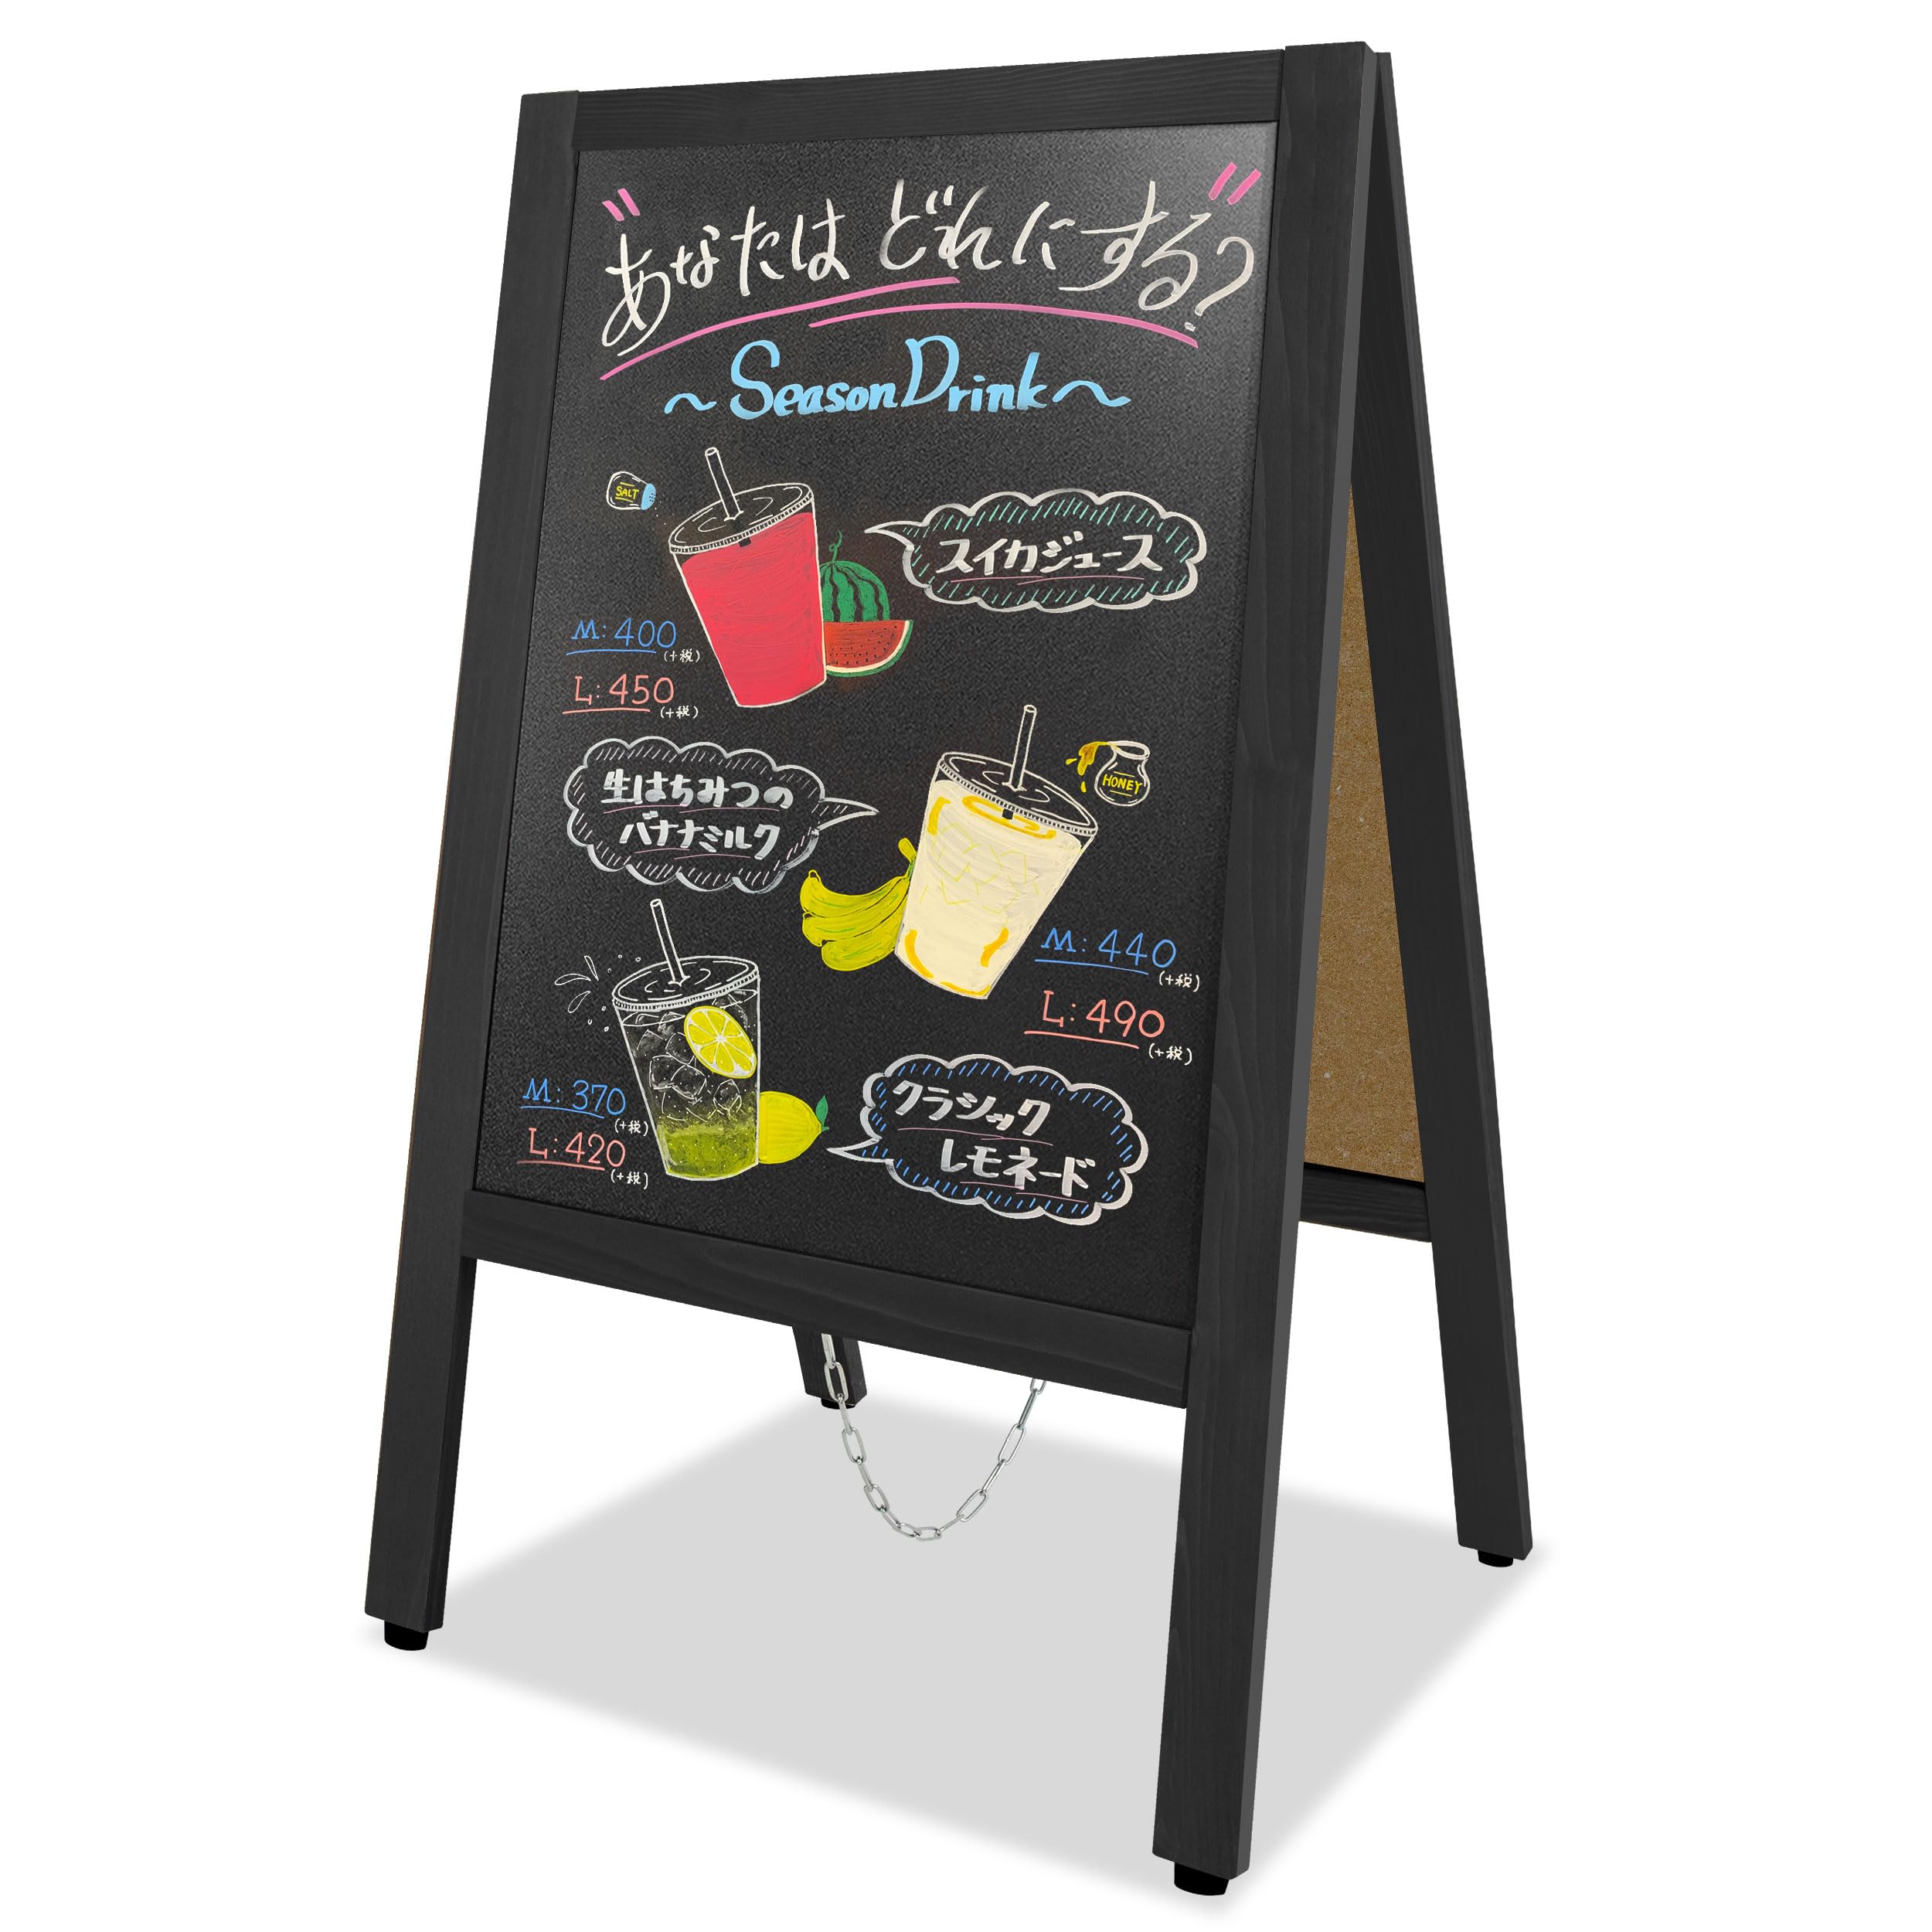 "あなたは どれにする?"
~Season Drink~
SALT
スイカジュース
M:400
(+税)
L:450
(+税)
生はちみつの
バナナミルク
HONEY
M:440
(+税)
L:490
(+税)
M:370
(+税)
L:420
(+税)
クラシック
レモネード